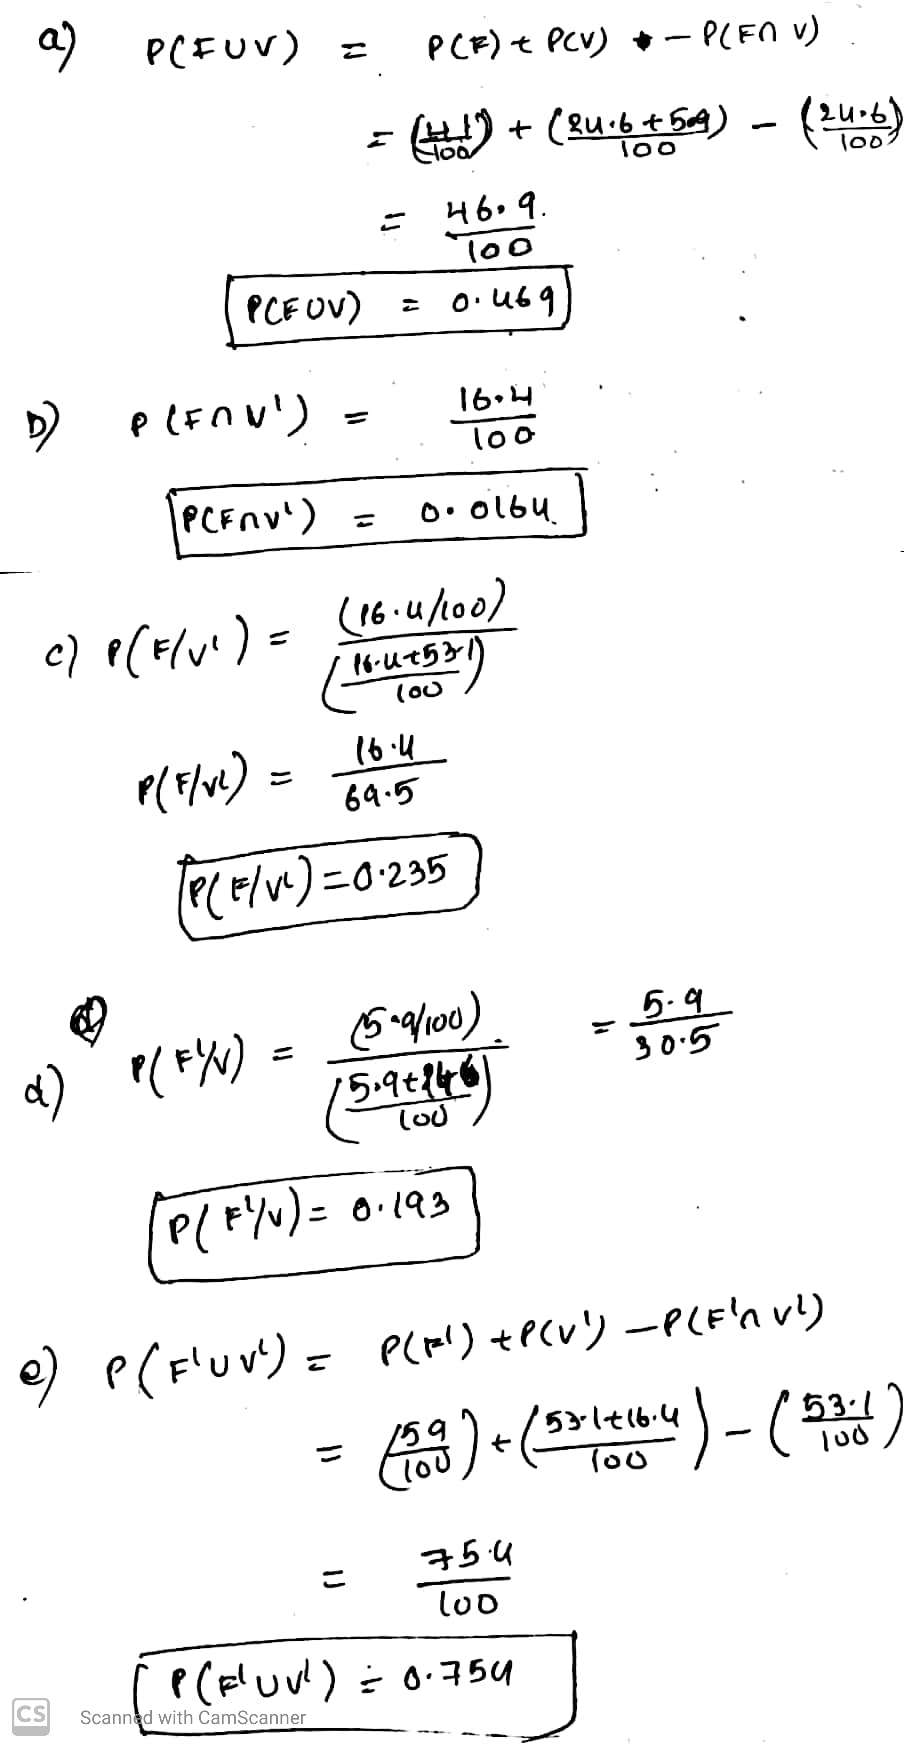 a) P(FUV) = P(F) + P(V) - P(F∩V)
= (41/100) + (24.6+5.9/100) - (24.6/100)
= 46.9/100
P(FUV) = 0.469
b) P(F∩V') = 16.4/100
P(F∩V') = 0.0164
c) P(F/V') = (16.4/100)/(16.4+53.1/100)
P(F/V') = 16.4/69.5
P(F/V') = 0.235
d) P(F'/V) = (5.9/100)/(5.9+24.6/100) = 5.9/30.5
P(F'/V) = 0.193
e) P(F'UV') = P(F') + P(V') - P(F'∩V')
= (59/100) + (53.1+16.4/100) - (53.1/100)
= 75.4/100
P(F'UV') = 0.754
CS Scanned with CamScanner